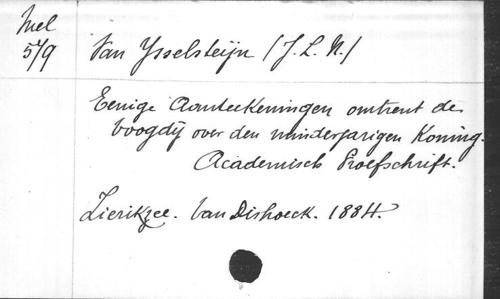 Mel
579
Van Ysselsteijn (J. L. N.)
Eenige Aanteekeningen omtrent de
voogdij over den minderjarigen Koning.
Academisch Proefschrift.
Zierikzee. Van Dishoeck. 1884.